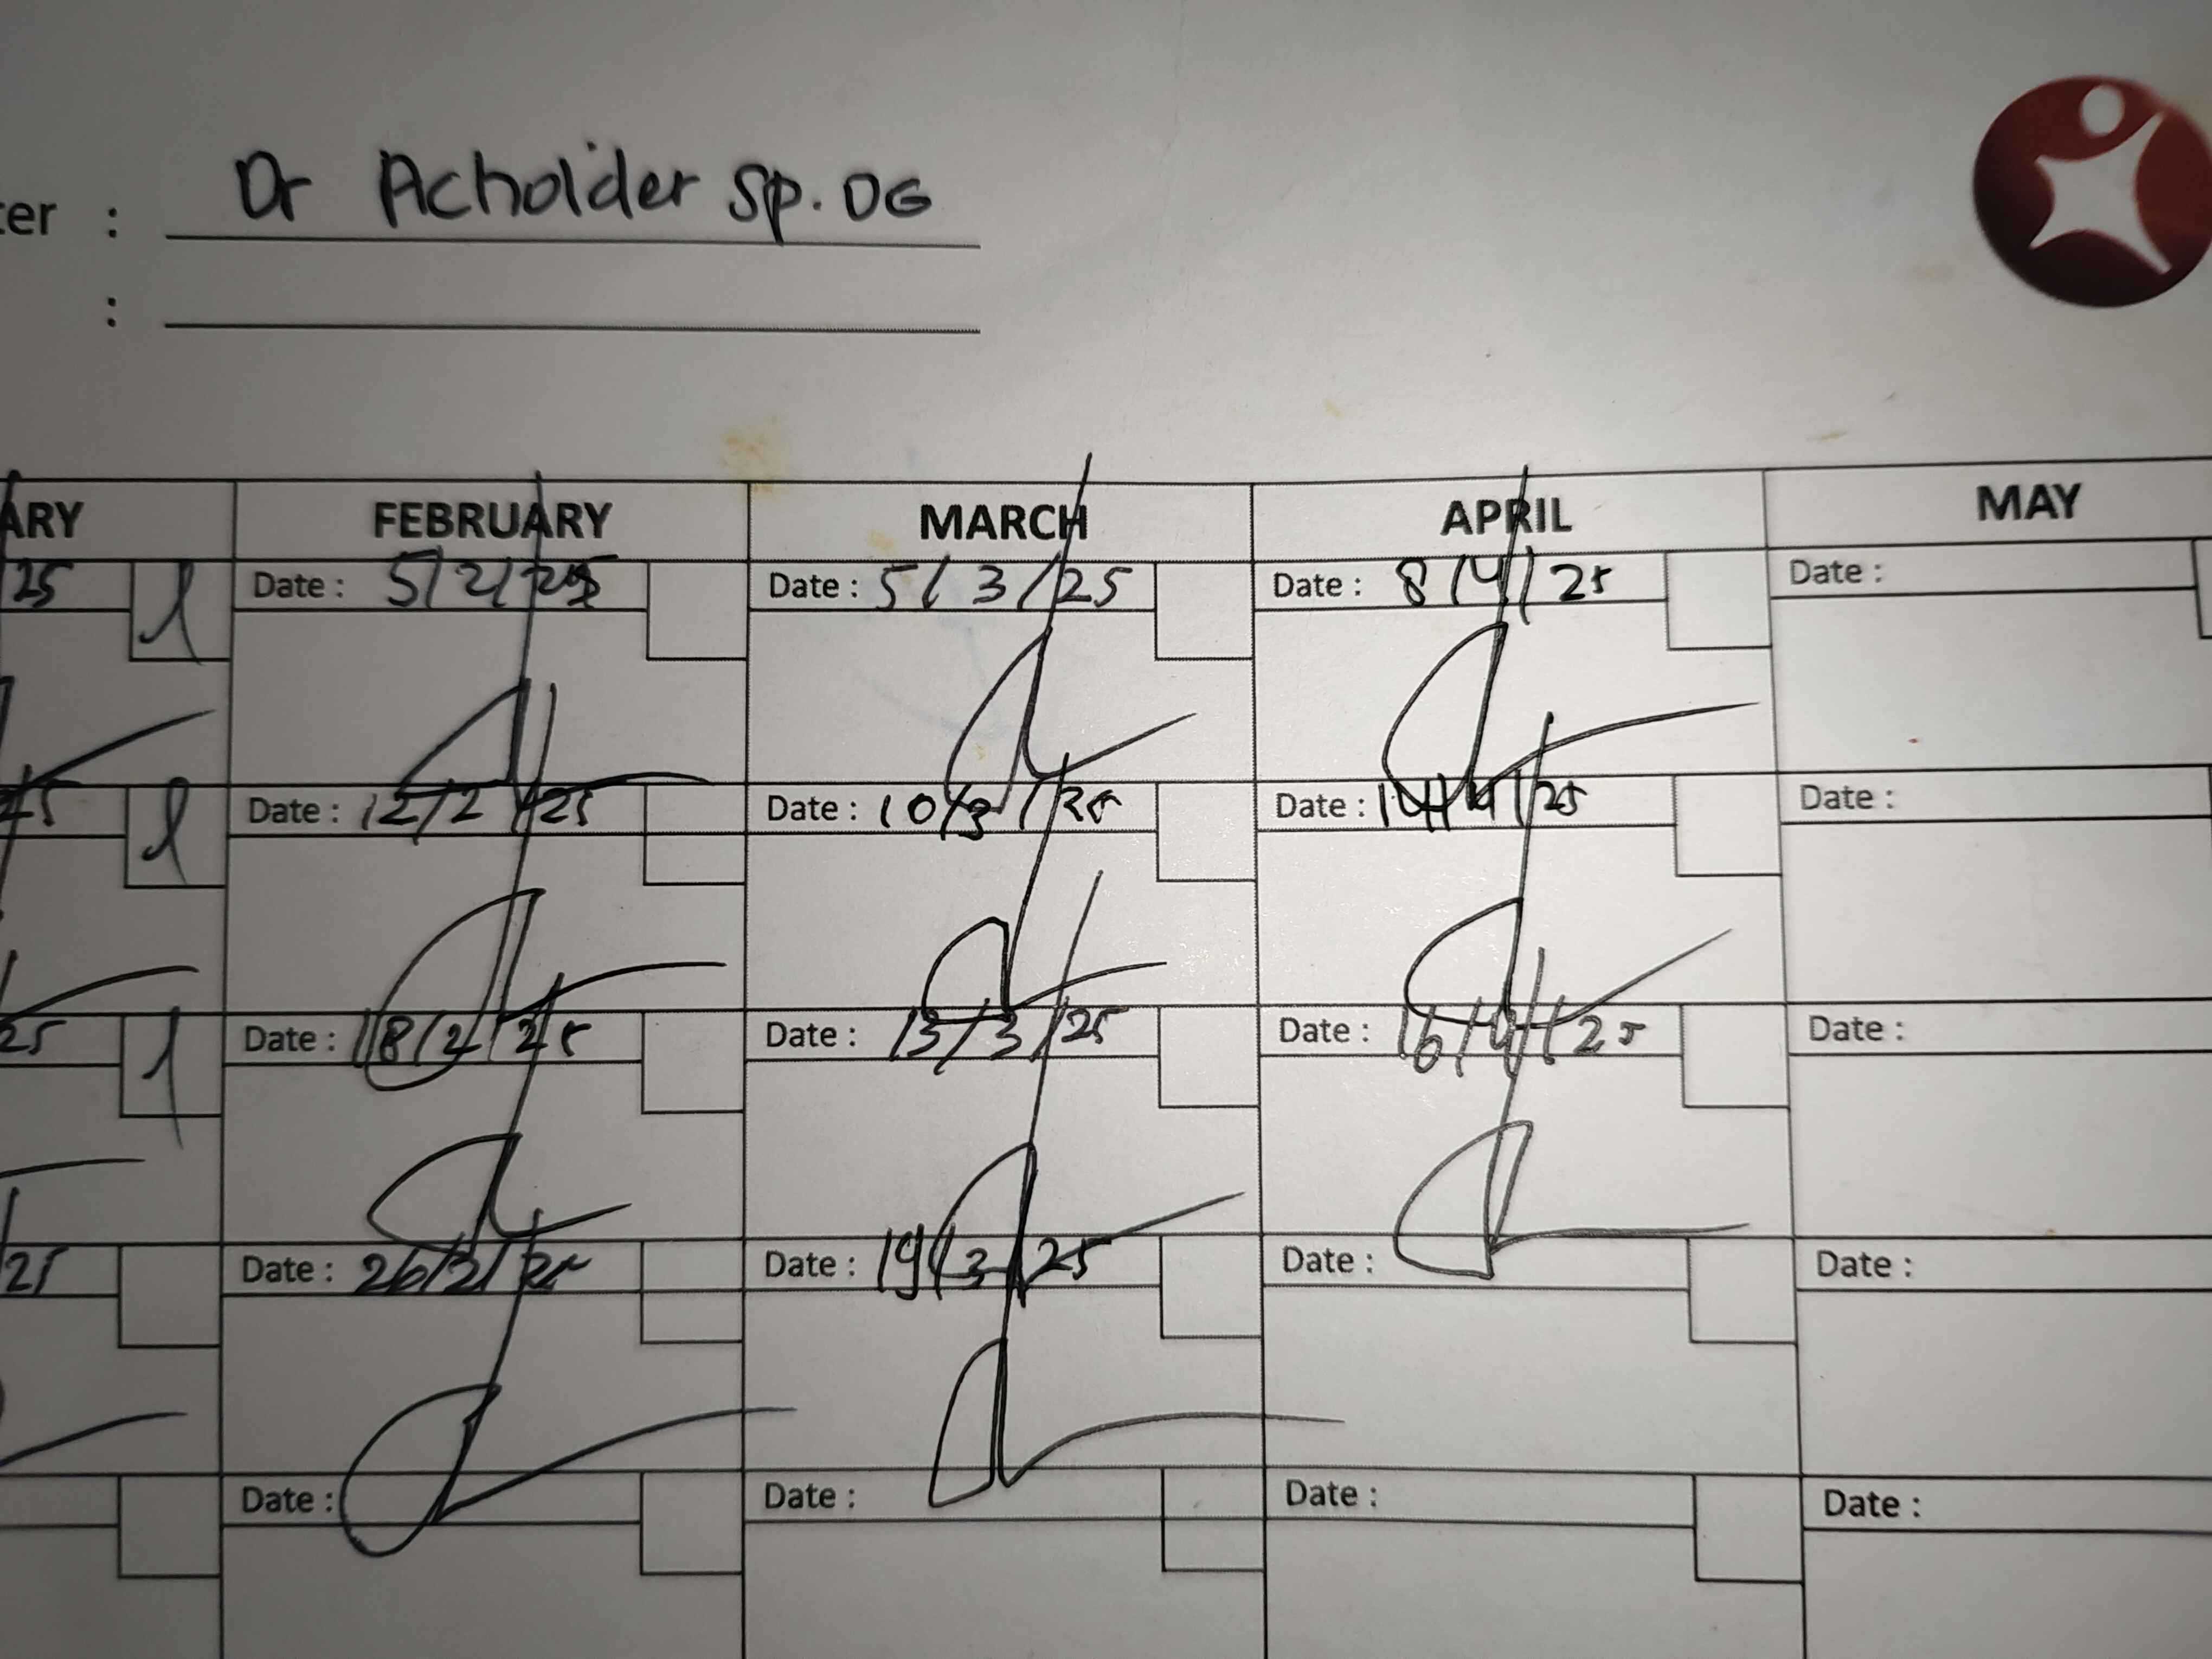 ter : Dr Acholder Sp. OG
:
ARY FEBRUARY MARCH APRIL MAY
25 Date : 5/2/25 Date : 5/3/25 Date : 8/4/25 Date :
25 Date : 12/2/25 Date : 10/3/25 Date : 14/4/25 Date :
25 Date : 18/2/25 Date : 13/3/25 Date : 16/4/25 Date :
25 Date : 26/2/25 Date : 19/3/25 Date : Date :
Date : Date : Date : Date :